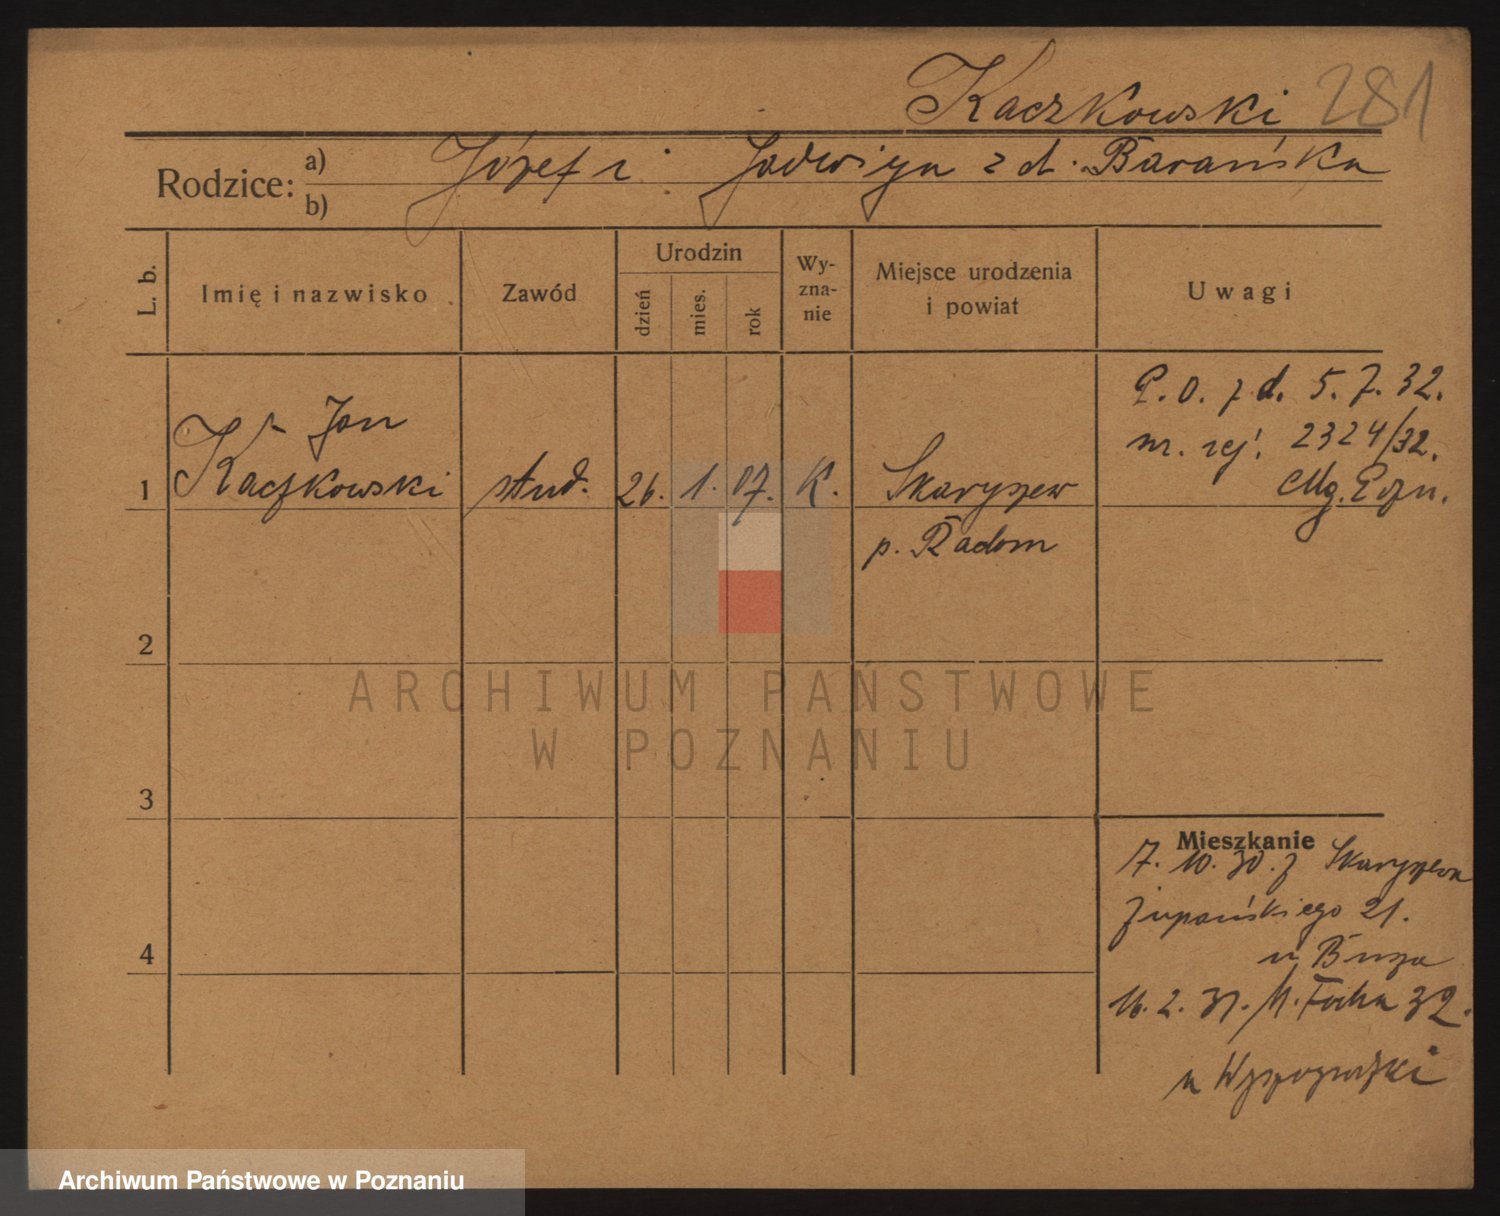 Kaczkowski 281
Rodzice: a) Józef i Jadwiga z d. Barańska
b)
L. b.
Imię i nazwisko
Zawód
Urodzin
dzień
mies.
rok
Wy-
zna-
nie
Miejsce urodzenia
i powiat
Uwagi
Jan
1 Kaczkowski stud. 26. 1. 07. K. Skaryszew
p. Radom
P. O. z d. 5. 7. 32.
nr. rej. 2324/32.
Mg. Pozn.
2
3
4
Mieszkanie
7. 10. 30. z Skaryszewa
Żupańskiego 21.
u Buza
16. 2. 31. M. Focha 32.
u
ARCHIWUM PAŃSTWOWE
W POZNANIU
Archiwum Państwowe w Poznaniu